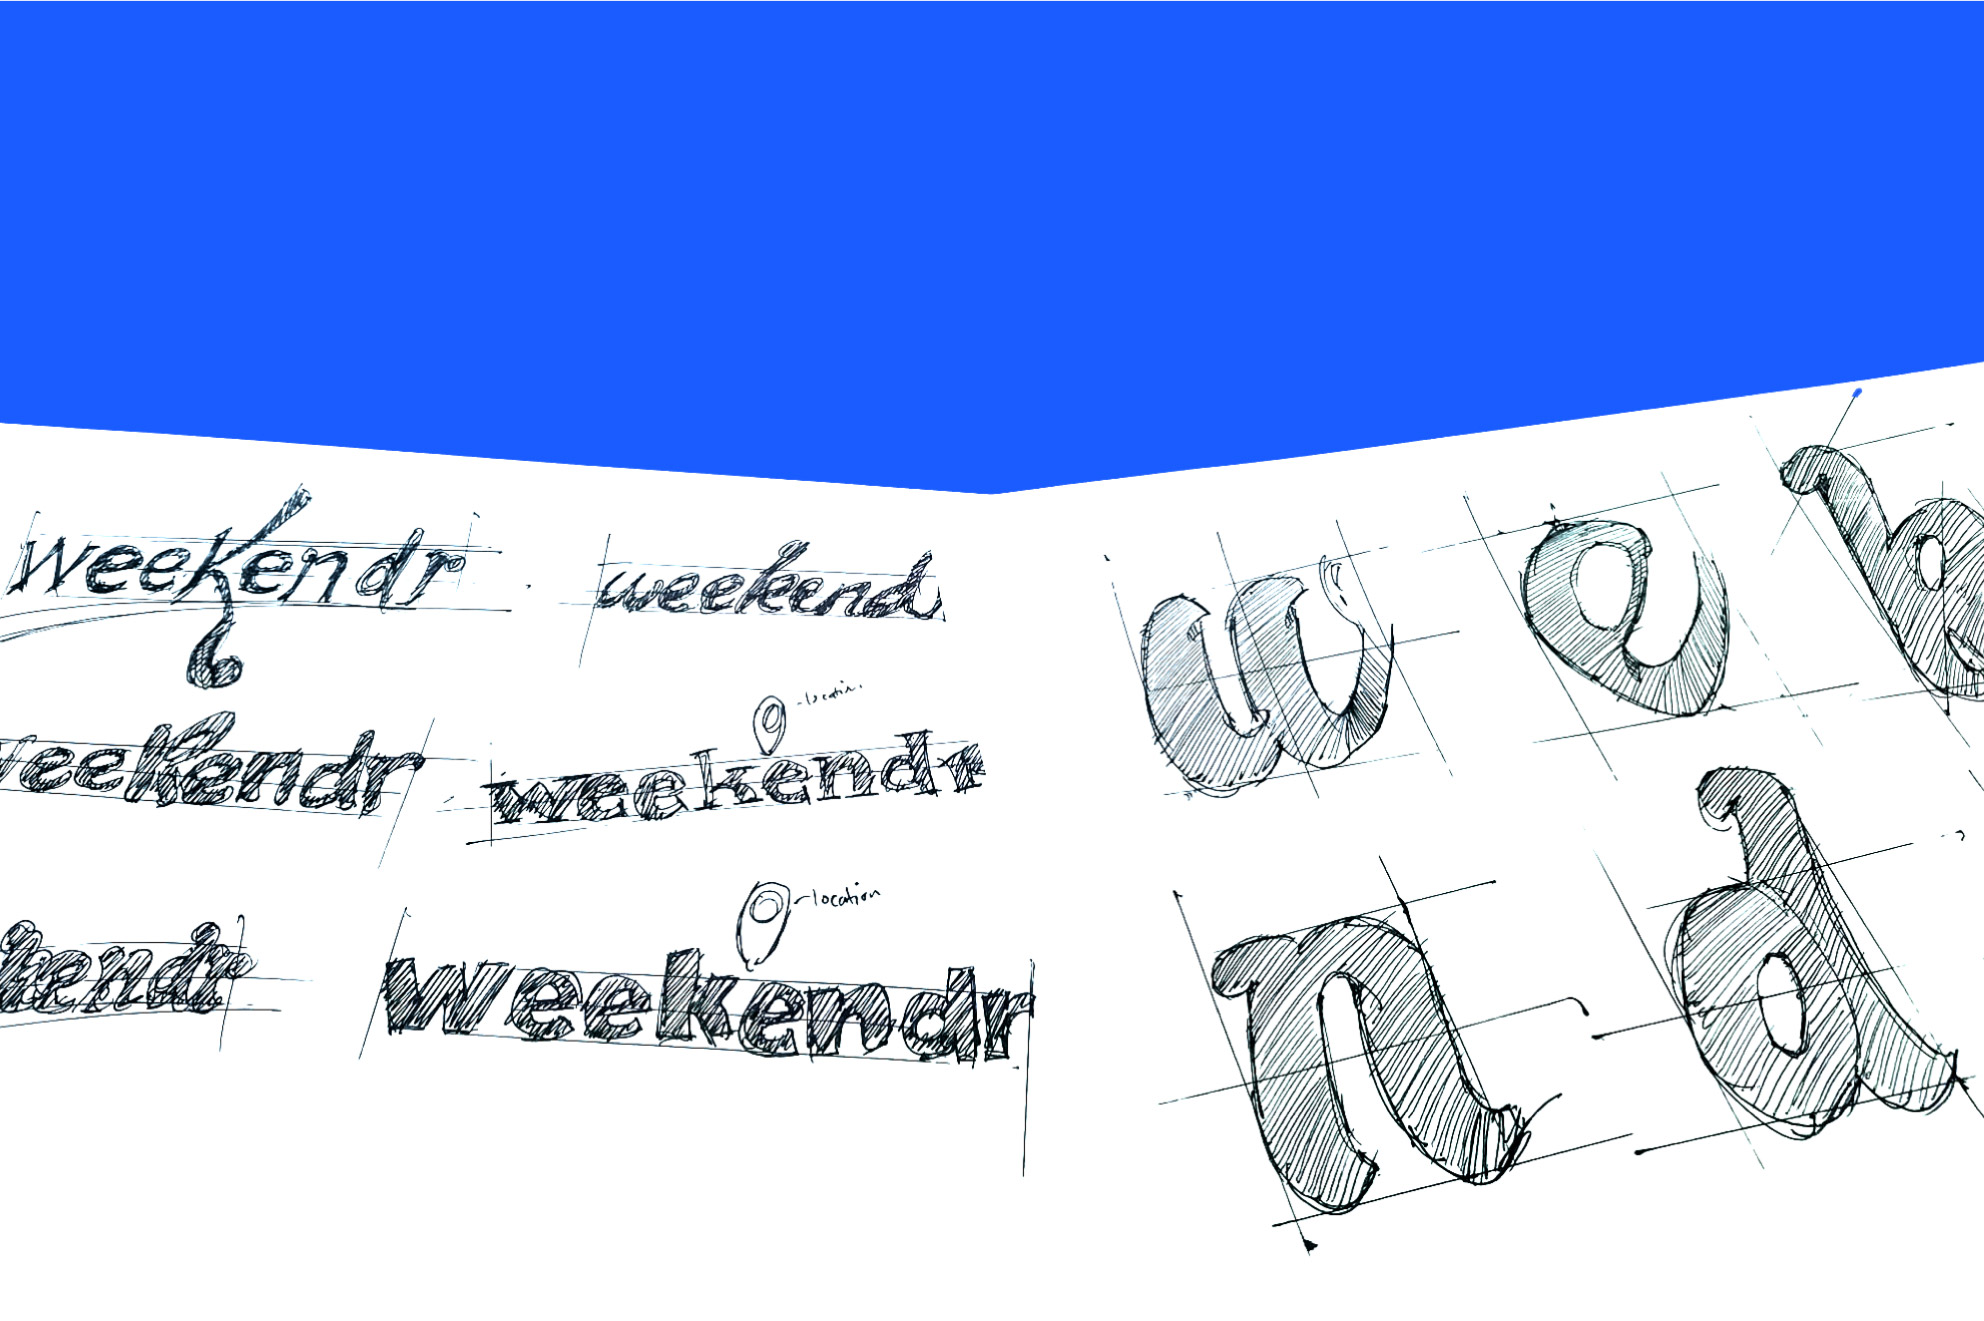 weekendr
weekend
weekendr
-location
weekendr
-location
kendr
weekendr
w e k
n d